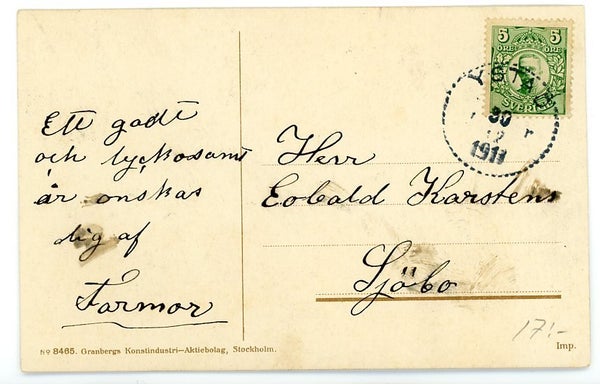 Ett godt
och lyckosamt
år onskas
dig af
Farmor
5 5
ÖRE ÖRE
SVERIGE
YST
30
12
1911
Herr
Eobald Karstens
Sjöbo
17:-
No 8465. Granbergs Konstindustri–Aktiebolag, Stockholm.
Imp.